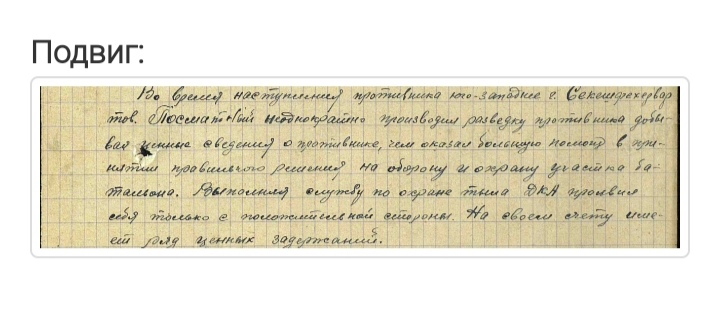 Подвиг:
Во время наступления противника юго-западнее г. Секешфехервар
тов. Посматный неоднократно производил разведку противника добы-
вая ценные сведения о противнике, чем оказал большую помощь в при-
нятии правильного решения на оборону и охрану участка ба-
тальона. Выполняя службу по охране тыла ДКА проявил
себя только с положительной стороны. На своем счету име-
ет ряд ценных задержаний.